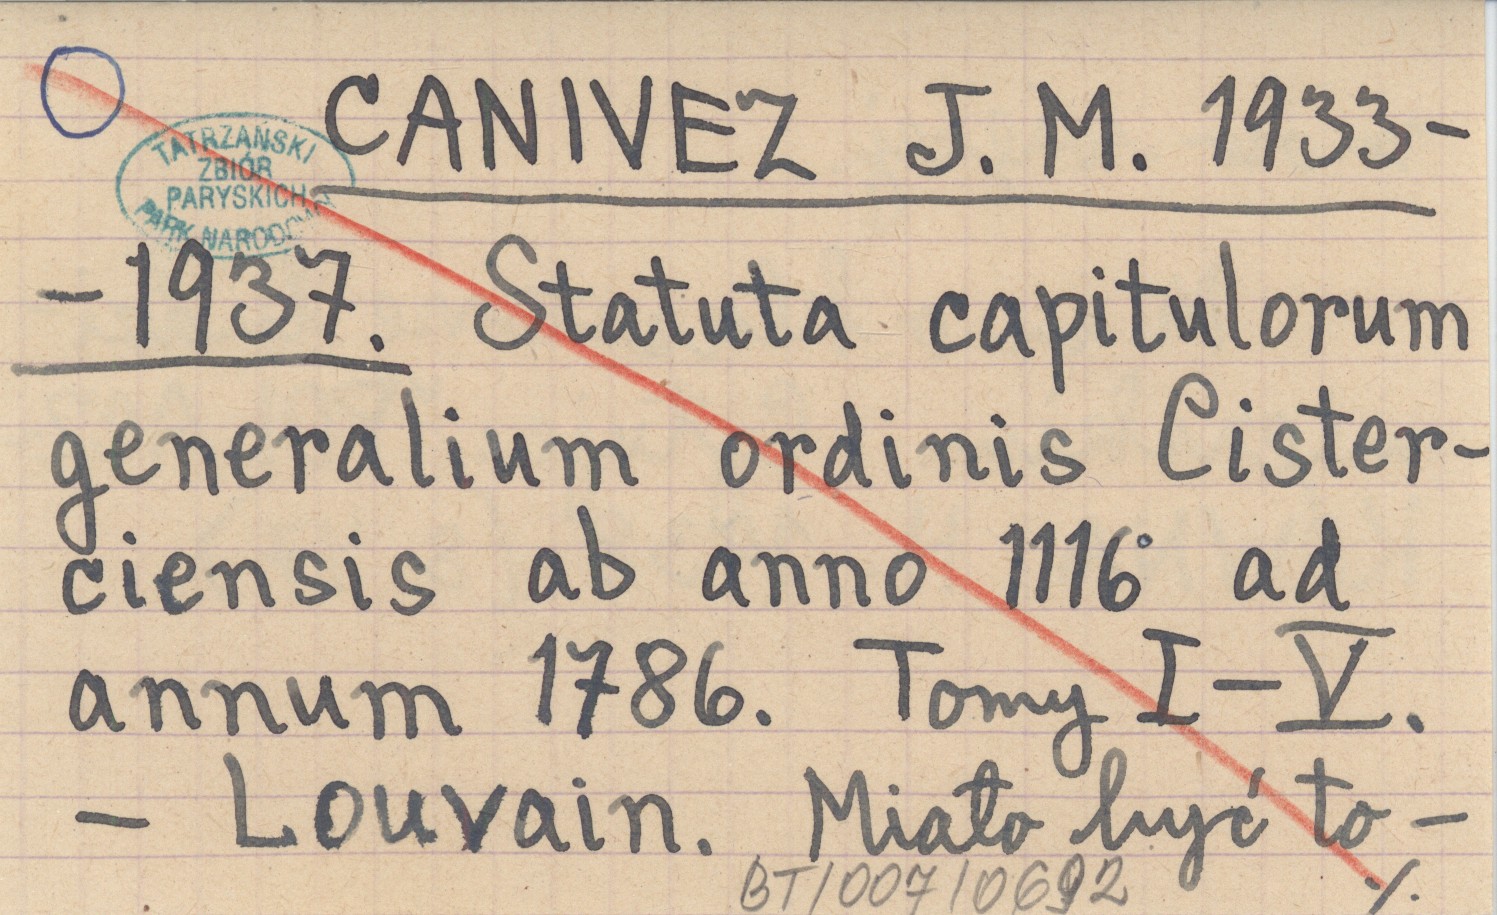 CANIVEZ J. M. 1933-
TATRZAŃSKI
ZBIÓR
PARYSKICH
PARK NARODOWY
-1937. Statuta capitulorum
generalium ordinis Cister-
ciensis ab anno 1116 ad
annum 1786. Tomy I-V.
- Louvain. Miało być to-
BT/007/0692 ./.